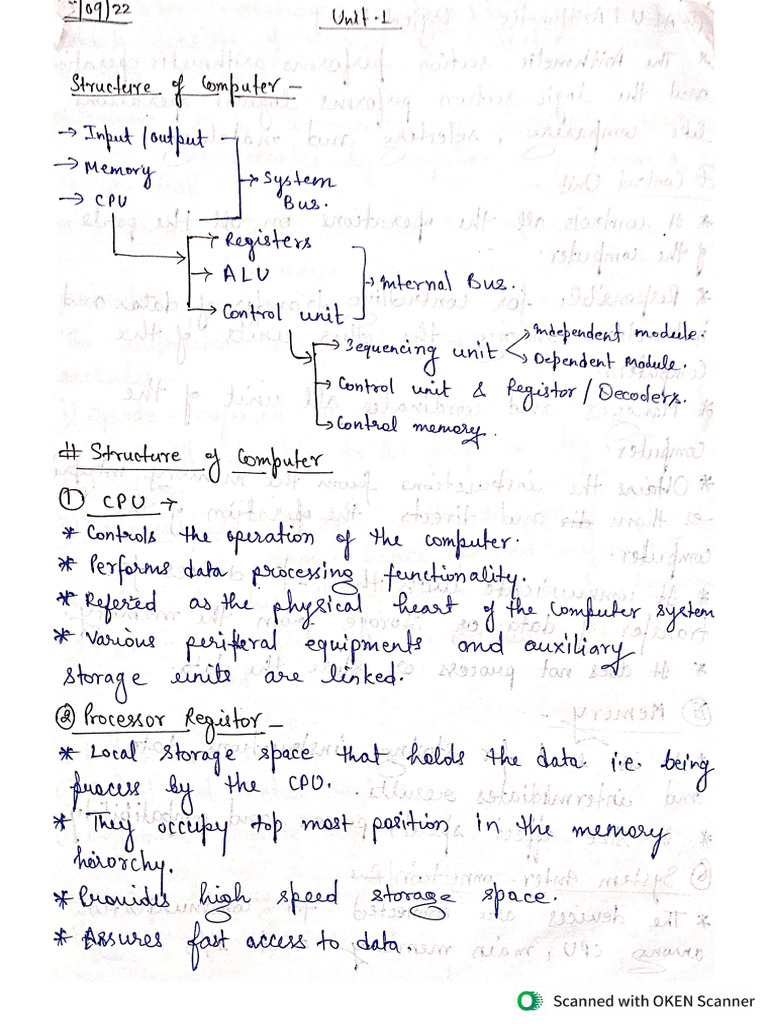 /09/22
Unit-1
Structure of Computer -
→ Input / output
→ Memory
→ CPU
→ System Bus.
→ Registers
→ ALU
→ Control unit
→ Internal Bus.
→ Sequencing unit
→ Independent module.
→ Dependent Module.
→ Control unit & Registor / Decoders.
→ Control memory.
# Structure of Computer
① CPU →
* Controls the operation of the computer.
* Performs data processing functionality.
* Refered as the physical heart of the computer system
* Various periferal equipments and auxiliary
storage units are linked.
② Processor Registor -
* Local storage space that holds the data i.e. being
process by the CPU.
* They occupy top most position in the memory
hierorchy.
* Provides high speed storage space.
* Assures fast access to data.
Scanned with OKEN Scanner